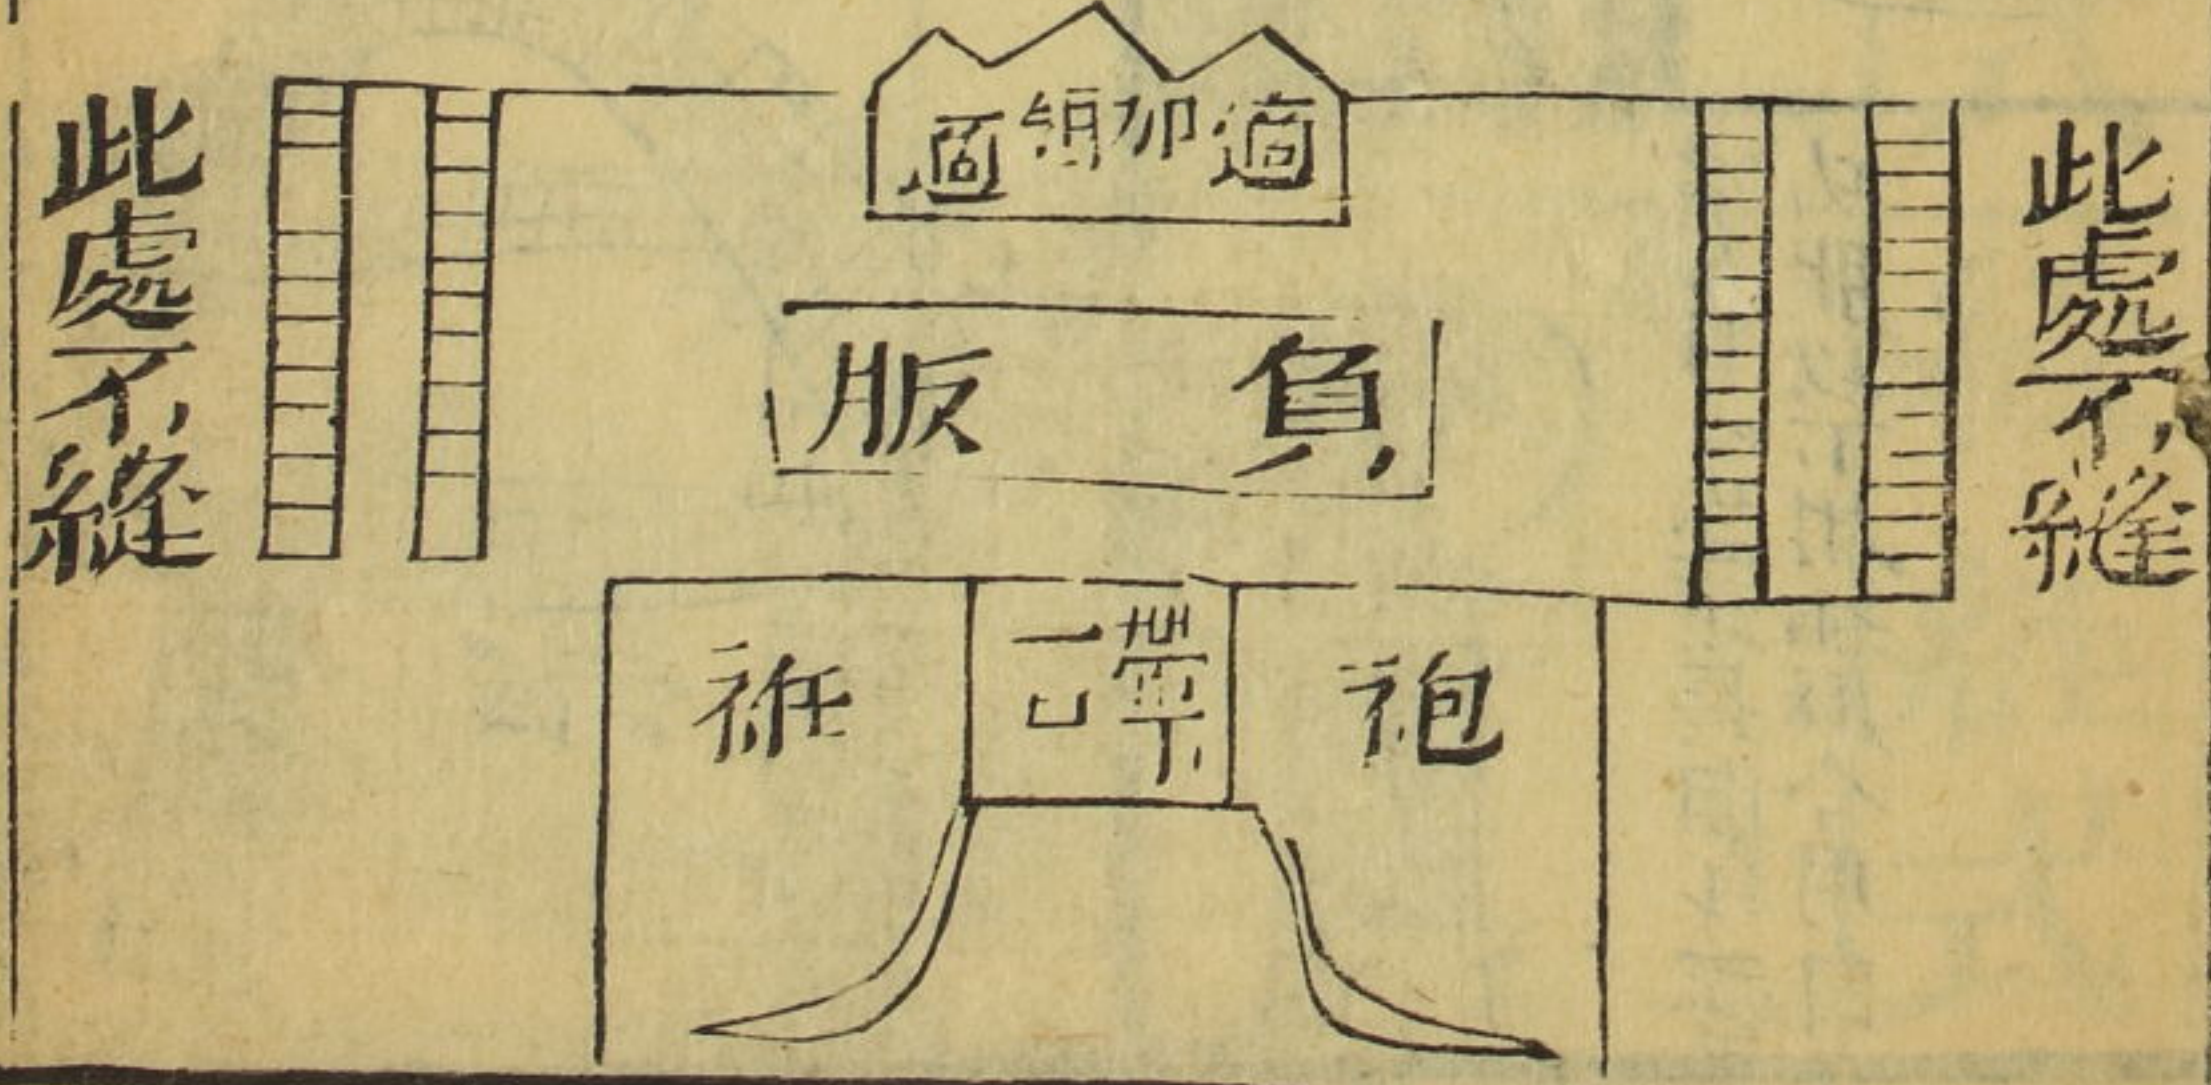 此處不縫
適加領適
負版
袍
帶下
一
衽
此處不縫